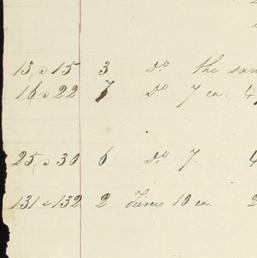 13 a 15 3 do the sam
16 a 22 7 do 7 ea. 4
25 a 30 6 do 7. 4
131 & 132 2 10 ea. 2